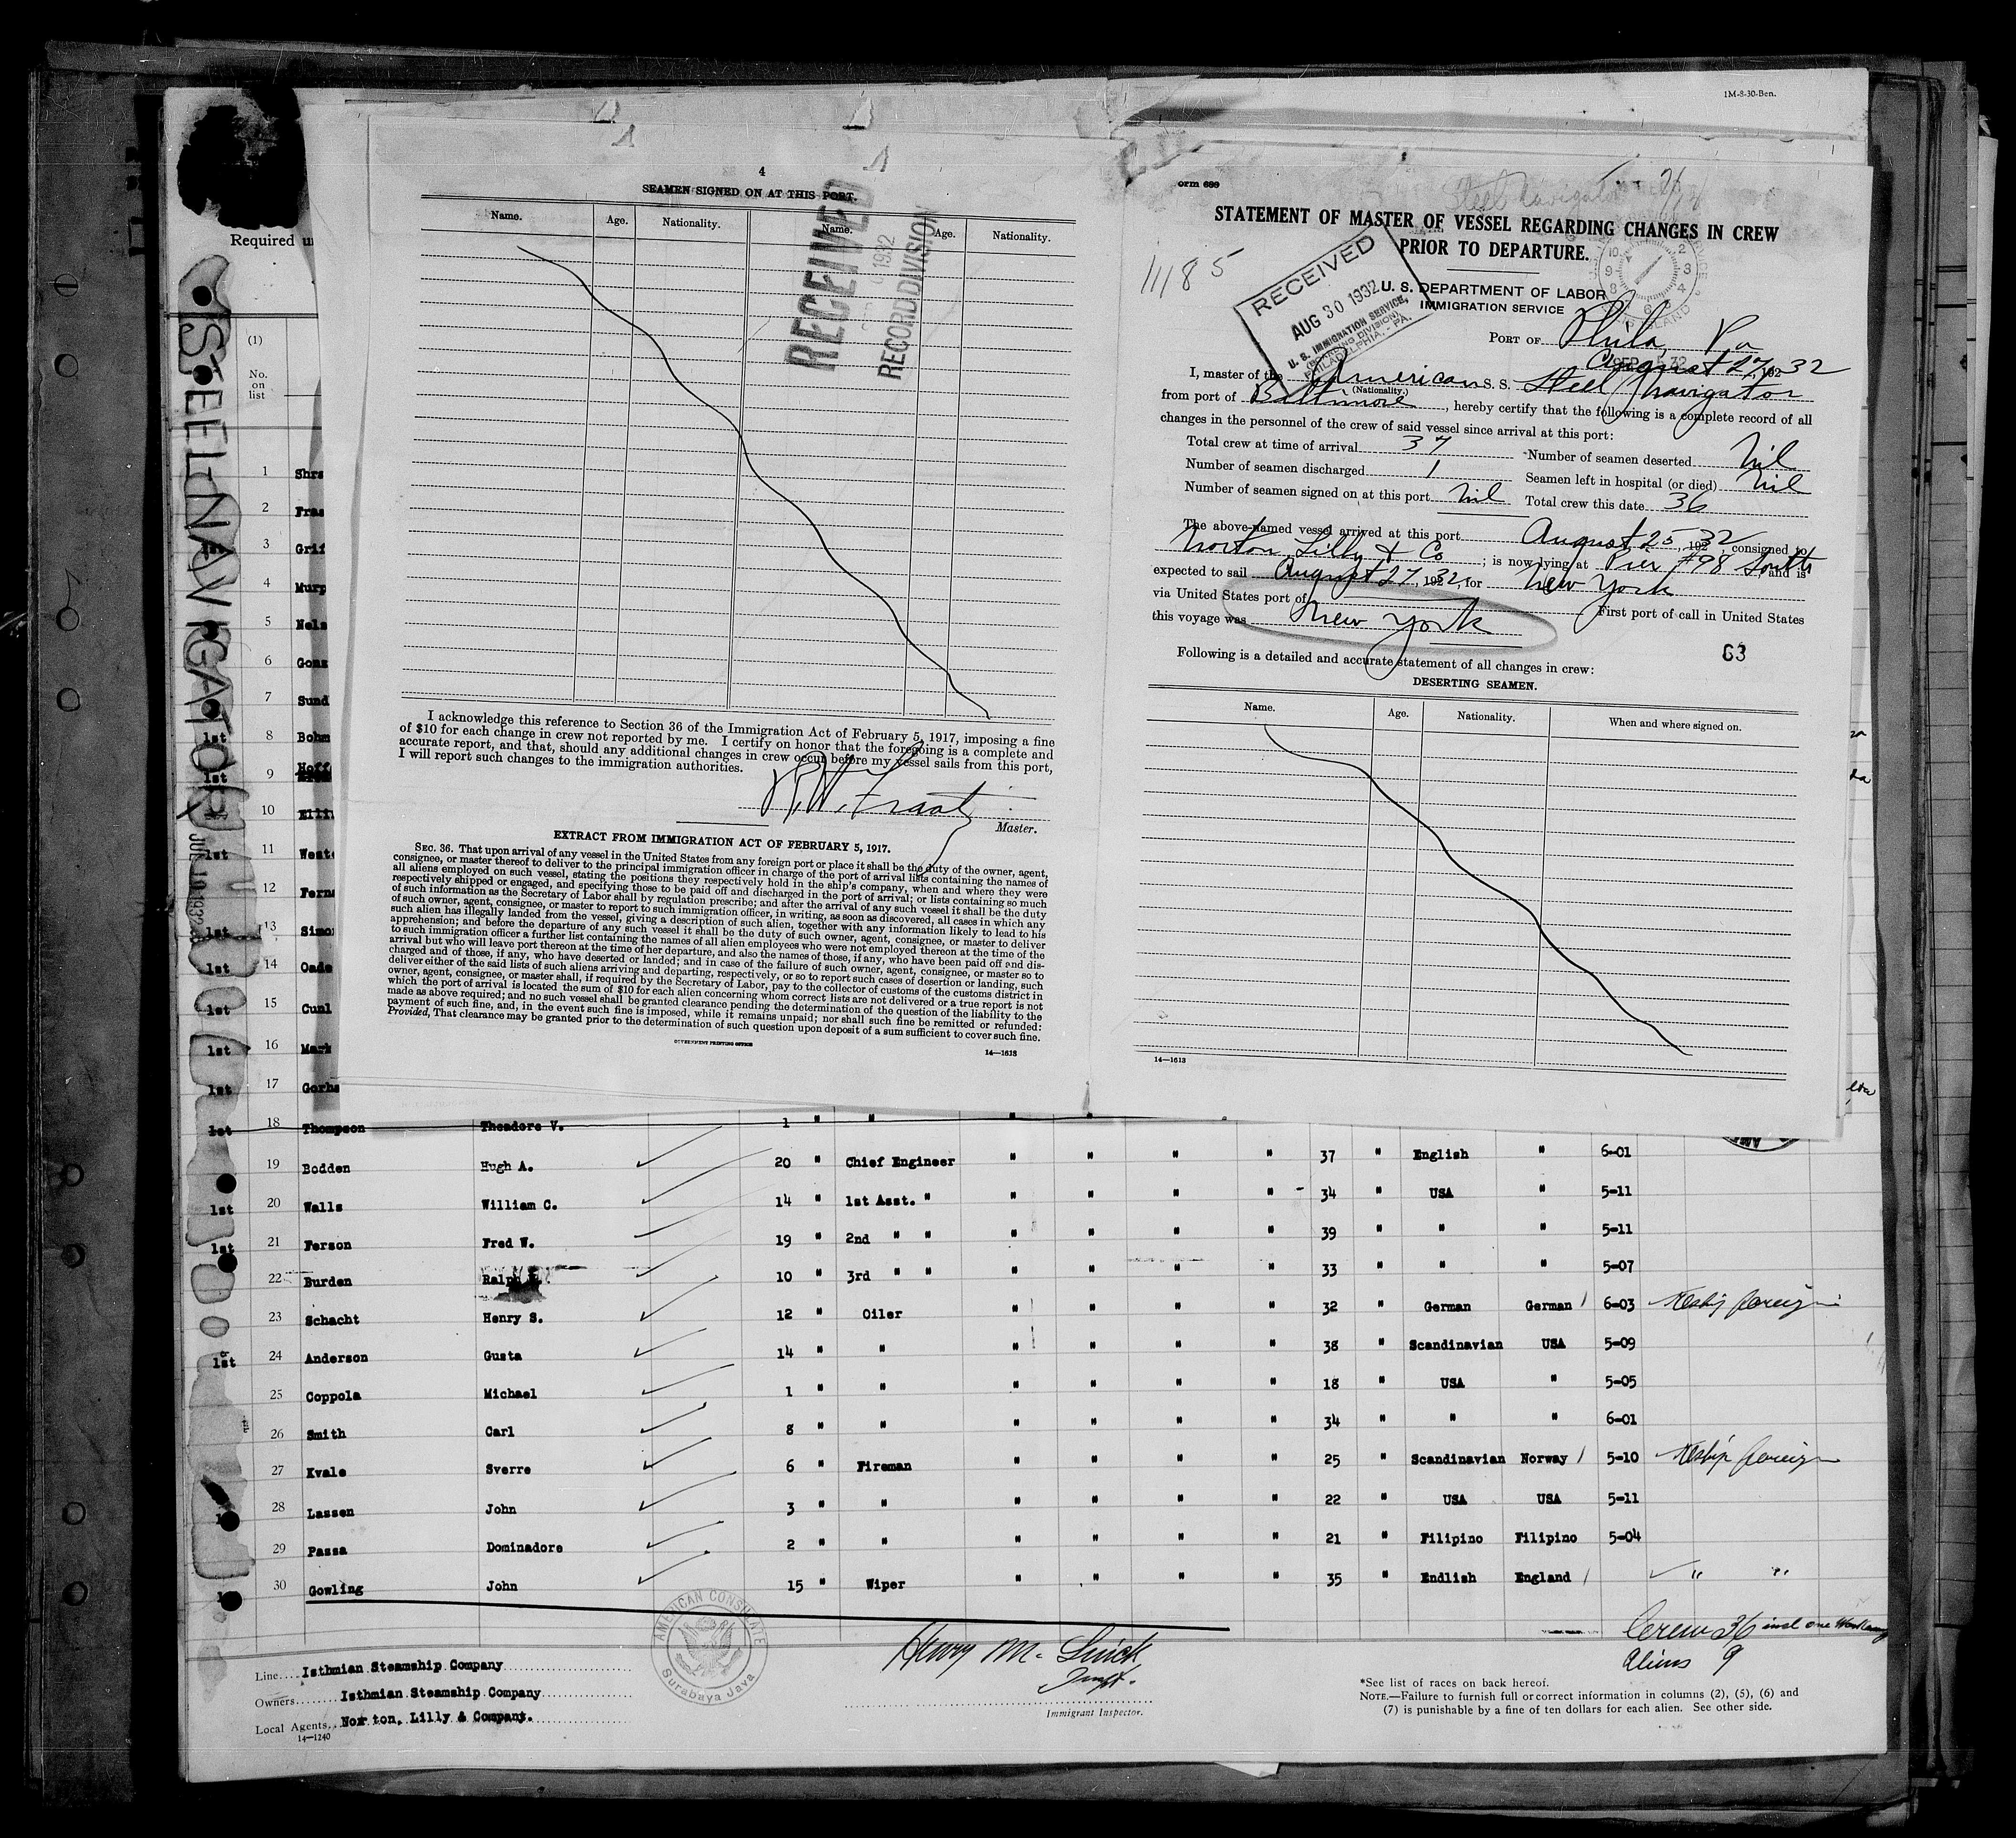 1M-8-30-Ben.
Required u
STEEL NAVIGATOR
JUL 10 1932
(1)
No.
on
list
1 Shra
2 Fras
3 Grif
4 Murp
5 Nels
6 Gonz
7 Sund
1st 8 Bohm
1st 9 Hoff
10 Elli
1st 11 Weste
12 Ferna
1st 13 Simo
1st 14 Oade
1st 15 Cunl
1st 16 Mark
1st 17 Gorha
4
SEAMEN SIGNED ON AT THIS PORT.
Name. Age. Nationality. Name. Age. Nationality.
RECEIVED
1932
RECORD DIVISION
I acknowledge this reference to Section 36 of the Immigration Act of February 5, 1917, imposing a fine
of $10 for each change in crew not reported by me. I certify on honor that the foregoing is a complete and
accurate report, and that, should any additional changes in crew occur before my vessel sails from this port,
I will report such changes to the immigration authorities.
Master.
EXTRACT FROM IMMIGRATION ACT OF FEBRUARY 5, 1917.
SEC. 36. That upon arrival of any vessel in the United States from any foreign port or place it shall be the duty of the owner, agent,
consignee, or master thereof to deliver to the principal immigration officer in charge of the port of arrival lists containing the names of
all aliens employed on such vessel, stating the positions they respectively hold in the ship's company, when and where they were
respectively shipped or engaged, and specifying those to be paid off and discharged in the port of arrival; or lists containing so much
of such information as the Secretary of Labor shall by regulation prescribe; and after the arrival of any such vessel it shall be the duty
of such owner, agent, consignee, or master to report to such immigration officer, in writing, as soon as discovered, all cases in which any
such alien has illegally landed from the vessel, giving a description of such alien, together with any information likely to lead to his
apprehension; and before the departure of any such vessel it shall be the duty of such owner, agent, consignee, or master to deliver
to such immigration officer a further list containing the names of all alien employees who were not employed thereon at the time of the
arrival but who will leave port thereon at the time of her departure, and also the names of those, if any, who have been paid off and dis-
charged and of those, if any, who have deserted or landed; and in case of the failure of such owner, agent, consignee, or master so to
deliver either of the said lists of such aliens arriving and departing, respectively, or so to report such cases of desertion or landing, such
owner, agent, consignee, or master shall, if required by the Secretary of Labor, pay to the collector of customs of the customs district in
which the port of arrival is located the sum of $10 for each alien concerning whom correct lists are not delivered or a true report is not
made as above required; and no such vessel shall be granted clearance pending the determination of the question of the liability to the
payment of such fine, and, in the event such fine is imposed, while it remains unpaid; nor shall such fine be remitted or refunded:
Provided, That clearance may be granted prior to the determination of such question upon deposit of a sum sufficient to cover such fine.
GOVERNMENT PRINTING OFFICE 14—1613
orm 689
Steel Navigator
STATEMENT OF MASTER OF VESSEL REGARDING CHANGES IN CREW
PRIOR TO DEPARTURE.
11185
RECEIVED
AUG 30 1932
U. S. IMMIGRATION SERVICE,
(BOARDING DIVISION)
PHILADELPHIA, - PA.
U. S. DEPARTMENT OF LABOR
IMMIGRATION SERVICE
PORT OF Phila Pa
August 27, 1932
I, master of the American S. S. Steel Navigator
(Nationality.)
from port of Baltimore, hereby certify that the following is a complete record of all
changes in the personnel of the crew of said vessel since arrival at this port:
Total crew at time of arrival 37 Number of seamen deserted nil
Number of seamen discharged 1 Seamen left in hospital (or died) nil
Number of seamen signed on at this port nil Total crew this date 36
The above-named vessel arrived at this port August 25, 1932, consigned to
Norton Lilly & Co; is now lying at Pier #98 South and is
expected to sail August 27, 1932, for New York
via United States port of First port of call in United States
this voyage was New York
63
Following is a detailed and accurate statement of all changes in crew:
DESERTING SEAMEN.
Name. Age. Nationality. When and where signed on.
14—1613
1st 18 Thompson Theodore V. 1 " "
19 Bodden Hugh A. 20 " Chief Engineer " " " " 37 " English " 6-01
1st 20 Walls William C. 14 " 1st Asst. " " " " " 34 " USA " 5-11
1st 21 Ferson Fred W. 19 " 2nd " " " " " " 39 " " " 5-11
22 Burden Ralph 10 " 3rd " " " " " " 33 " " " 5-07
23 Schacht Henry S. 12 " Oiler " " " " 32 " German German 6-03 Reship foreign
1st 24 Anderson Gusta 14 " " " " " " 38 " Scandinavian USA 5-09
25 Coppola Michael 1 " " " " " " 18 " USA " 5-05
26 Smith Carl 8 " " " " " " 34 " " " 6-01
27 Kvale Sverre 6 " Fireman " " " " 25 " Scandinavian Norway 5-10 Reship foreign
28 Lassen John 3 " " " " " " 22 " USA USA 5-11
29 Passa Dominadore 2 " " " " " " 21 " Filipino Filipino 5-04
30 Gowling John 15 " Wiper " " " " 35 " Endlish England " "
AMERICAN CONSULATE
Surabaya Java
Crew 36 incl one
Aliens 9
Line Isthmian Steamship Company
Owners Isthmian Steamship Company
Local Agents Norton, Lilly & Company.
14—1240
Henry M.
Inspt.
Immigrant Inspector.
*See list of races on back hereof.
NOTE.—Failure to furnish full or correct information in columns (2), (5), (6) and
(7) is punishable by a fine of ten dollars for each alien. See other side.